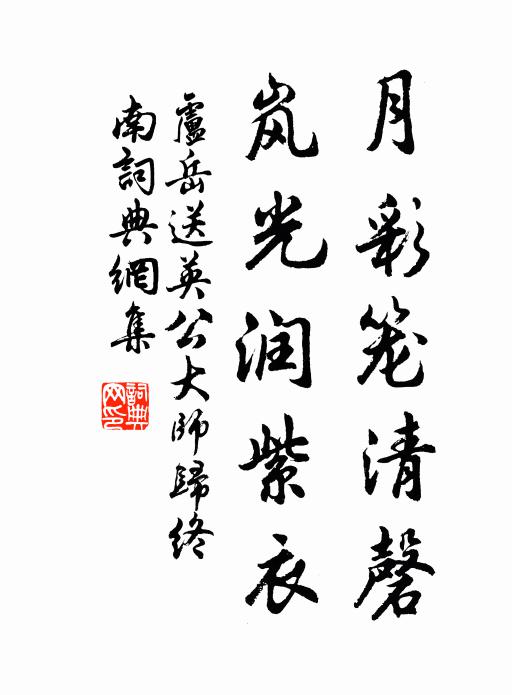 月彩笼清磬
岚光润紫衣
盧岳送英公大師歸终
南詞典網集
詞典网印